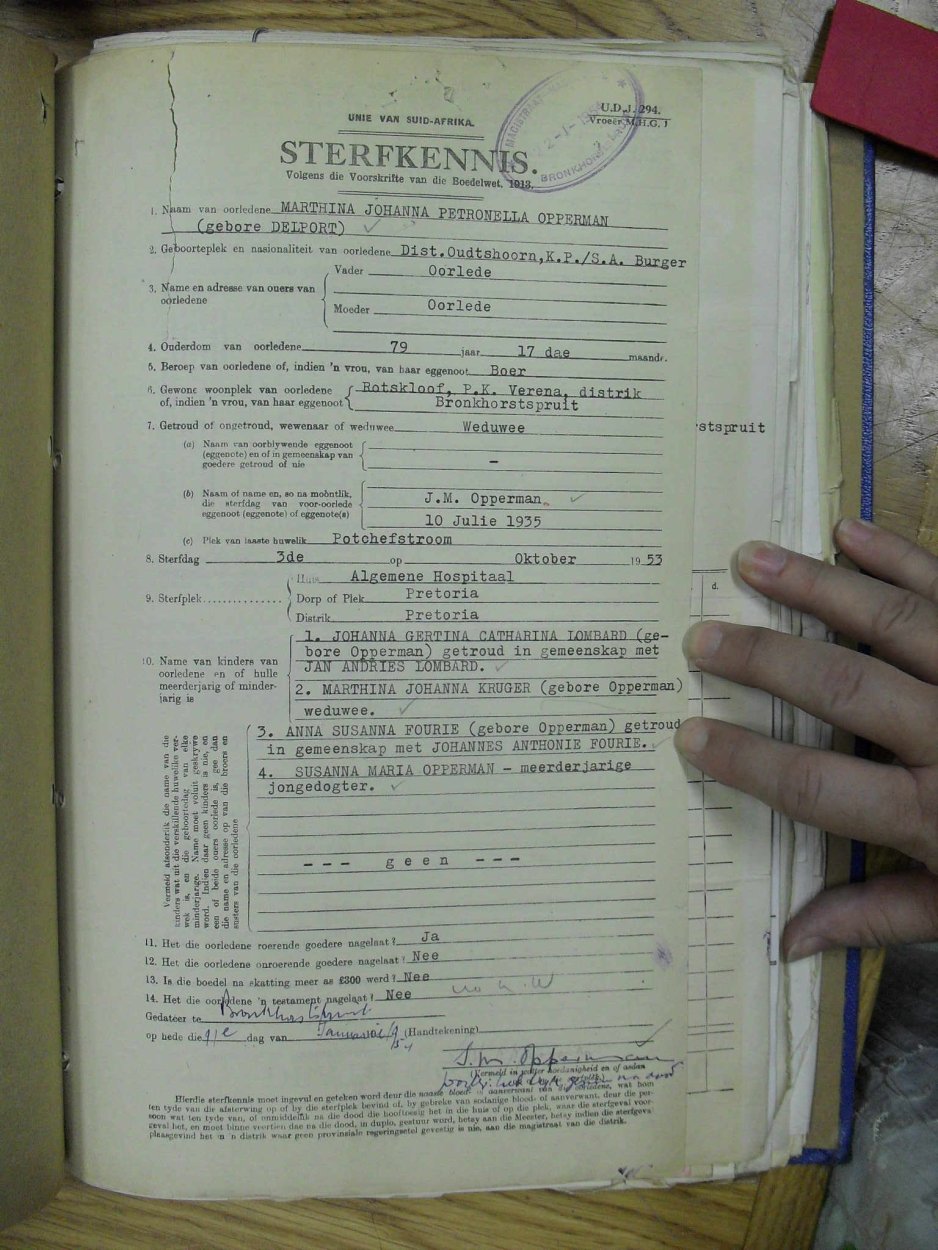 U.D.J. 294.
Vroeër M.H.G. 1
UNIE VAN SUID-AFRIKA.
STERFKENNIS.
Volgens die Voorskrifte van die Boedelwet, 1913.
MAGISTRAAT
22-1-1954
BRONKHORST
1. Naam van oorledene MARTHINA JOHANNA PETRONELLA OPPERMAN
(gebore DELPORT)
2. Geboorteplek en nasionaliteit van oorledene Dist.Oudtshoorn,K.P./S.A. Burger
3. Name en adresse van ouers van oorledene
Vader Oorlede
Moeder Oorlede
4. Ouderdom van oorledene 79 jaar 17 dae maande.
5. Beroep van oorledene of, indien 'n vrou, van haar eggenoot Boer
6. Gewone woonplek van oorledene Rotskloof, P.K. Verena, distrik
of, indien 'n vrou, van haar eggenoot Bronkhorstspruit
7. Getroud of ongetroud, wewenaar of weduwee Weduwee
rstspruit
(a) Naam van oorblywende eggenoot
(eggenote) en of in gemeenskap van
goedere getroud of nie –
(b) Naam of name en, so na moontlik,
die sterfdag van voor-oorlede
eggenoot (eggenote) of eggenote(s)
J.M. Opperman.
10 Julie 1935
(c) Plek van laaste huwelik Potchefstroom
8. Sterfdag 3de op Oktober 1953
d.
9. Sterfplek
Huis Algemene Hospitaal
Dorp of Plek Pretoria
Distrik Pretoria
10. Name van kinders van
oorledene en of hulle
meerderjarig of minder-
jarig is
1. JOHANNA GERTINA CATHARINA LOMBARD (ge-
bore Opperman) getroud in gemeenskap met
JAN ANDRIES LOMBARD.
2. MARTHINA JOHANNA KRUGER (gebore Opperman)
weduwee.
3. ANNA SUSANNA FOURIE (gebore Opperman) getroud
in gemeenskap met JOHANNES ANTHONIE FOURIE.
4. SUSANNA MARIA OPPERMAN – meerderjarige
jongedogter.
--- geen ---
Vermeld afsonderlik die name van die
kinders wat uit die verskillende huwelike ver-
wek is, en die geboortedag van elke
minderjarige. Name moet voluit geskrywe
word. Indien daar geen kinders is nie, en
een of beide ouers oorlede is, gee dan
die name en adresse op van die broers en
susters van die oorledene
11. Het die oorledene roerende goedere nagelaat? Ja
12. Het die oorledene onroerende goedere nagelaat? Nee
13. Is die boedel na skatting meer as £300 werd? Nee
14. Het die oorledene 'n testament nagelaat? Nee
Gedateer te Bronkhorstspruit
op hede die dag van Januarie (Handtekening)
S.M. Opperman
Hierdie sterfkennis moet ingevul en geteken word deur die naaste bloed- of aanverwant van die oorledene, wat hom
ten tyde van die afsterwing op of by die sterfplek bevind of, by gebreke van sodanige bloed- of aanverwant, deur die per-
soon wat ten tyde van, of onmiddellik na die dood die hooftoesig het in die huis of op die plek, waar die sterfgeval voor-
geval het, en moet binne veertien dae na die dood, in duplo, gestuur word, hetsy aan die Meester, hetsy indien die sterfgeval
plaasgevind het in 'n distrik waar geen provinsiale regeringsetel gevestig is nie, aan die magistraat van die distrik.